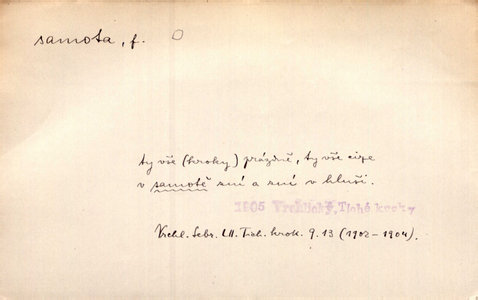 samota, f.
ty vše (kroky) prázdné, ty vše
v samotě zní a zní v hluši.
1905 Vrchlický, Tiché kroky
Vrchl. Sebr. LII. Tich. krok. 9. 13 (1902–1904).